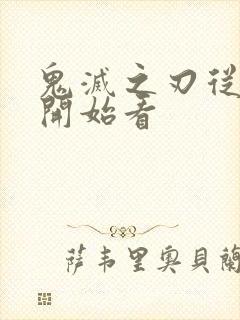 鬼滅之刃從
開始看
萨韦里奥贝蘭